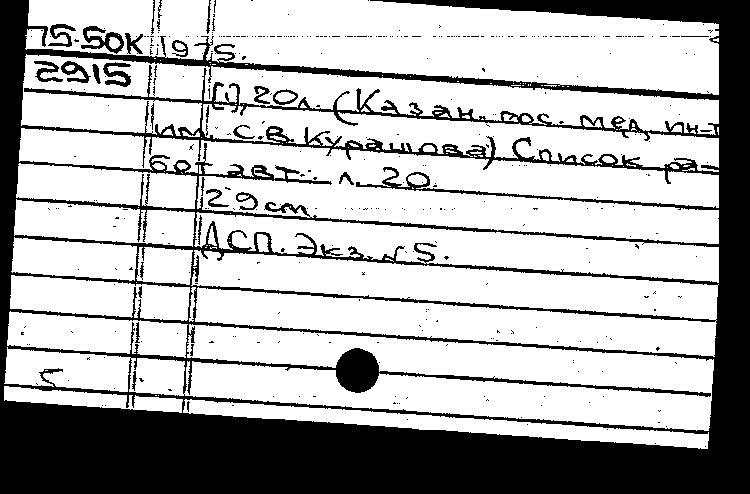 75-50К 1975.
2915
[1], 20л. (Казан. гос. мед. ин-т
им. С.В. Курашова) Список ра-
бот авт.: л. 20.
29 cm.
ДСП. Экз. № 5.
5